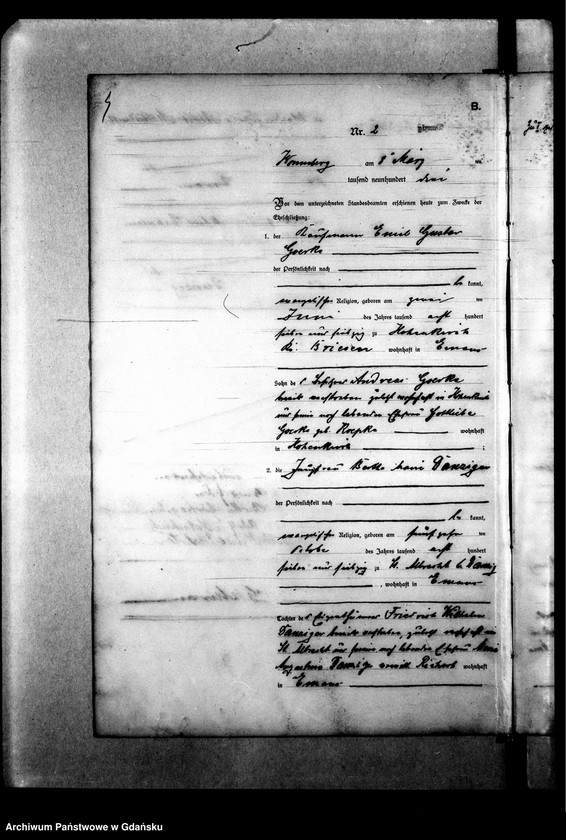 B.
Nr. 2
Wonneberg am 8 März
tausend neunhundert drei
Vor dem unterzeichneten Standesbeamten erschienen heute zum Zwecke der
Eheschließung:
1. der Kaufmann Emil Gustav
Goerke
der Persönlichkeit nach
be kannt,
evangelischer Religion, geboren am zwei ten
Juni des Jahres tausend acht hundert
sieben und siebzig zu Hohenkirch
Kr. Briesen wohnhaft in Emaus
Sohn des Besitzers Andreas Goerke
bereits verstorben zuletzt wohnhaft in Hohenkirch
und seiner noch lebenden Ehefrau Gottliebe
Goerke geb. Roepke wohnhaft
in Hohenkirch ;
2. die Jungfrau Bertha Marie Danziger
der Persönlichkeit nach
be kannt,
evangelischer Religion, geboren am fünfzehn ten
Oktober des Jahres tausend acht hundert
sieben und siebzig zu St. Albrecht b. Danzig
, wohnhaft in Emaus
Tochter des Eigenthümers Friedrich Wilhelm
Danziger bereits verstorben, zuletzt wohnhaft in
St. Albrecht und seiner noch lebenden Ehefrau
Augustine Danziger wohnhaft
in Emaus
Archiwum Państwowe w Gdańsku